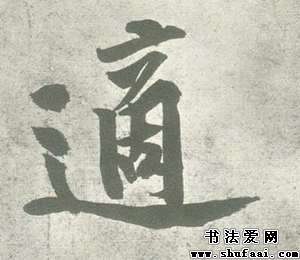 適
书法爱网
www.shufaai.com